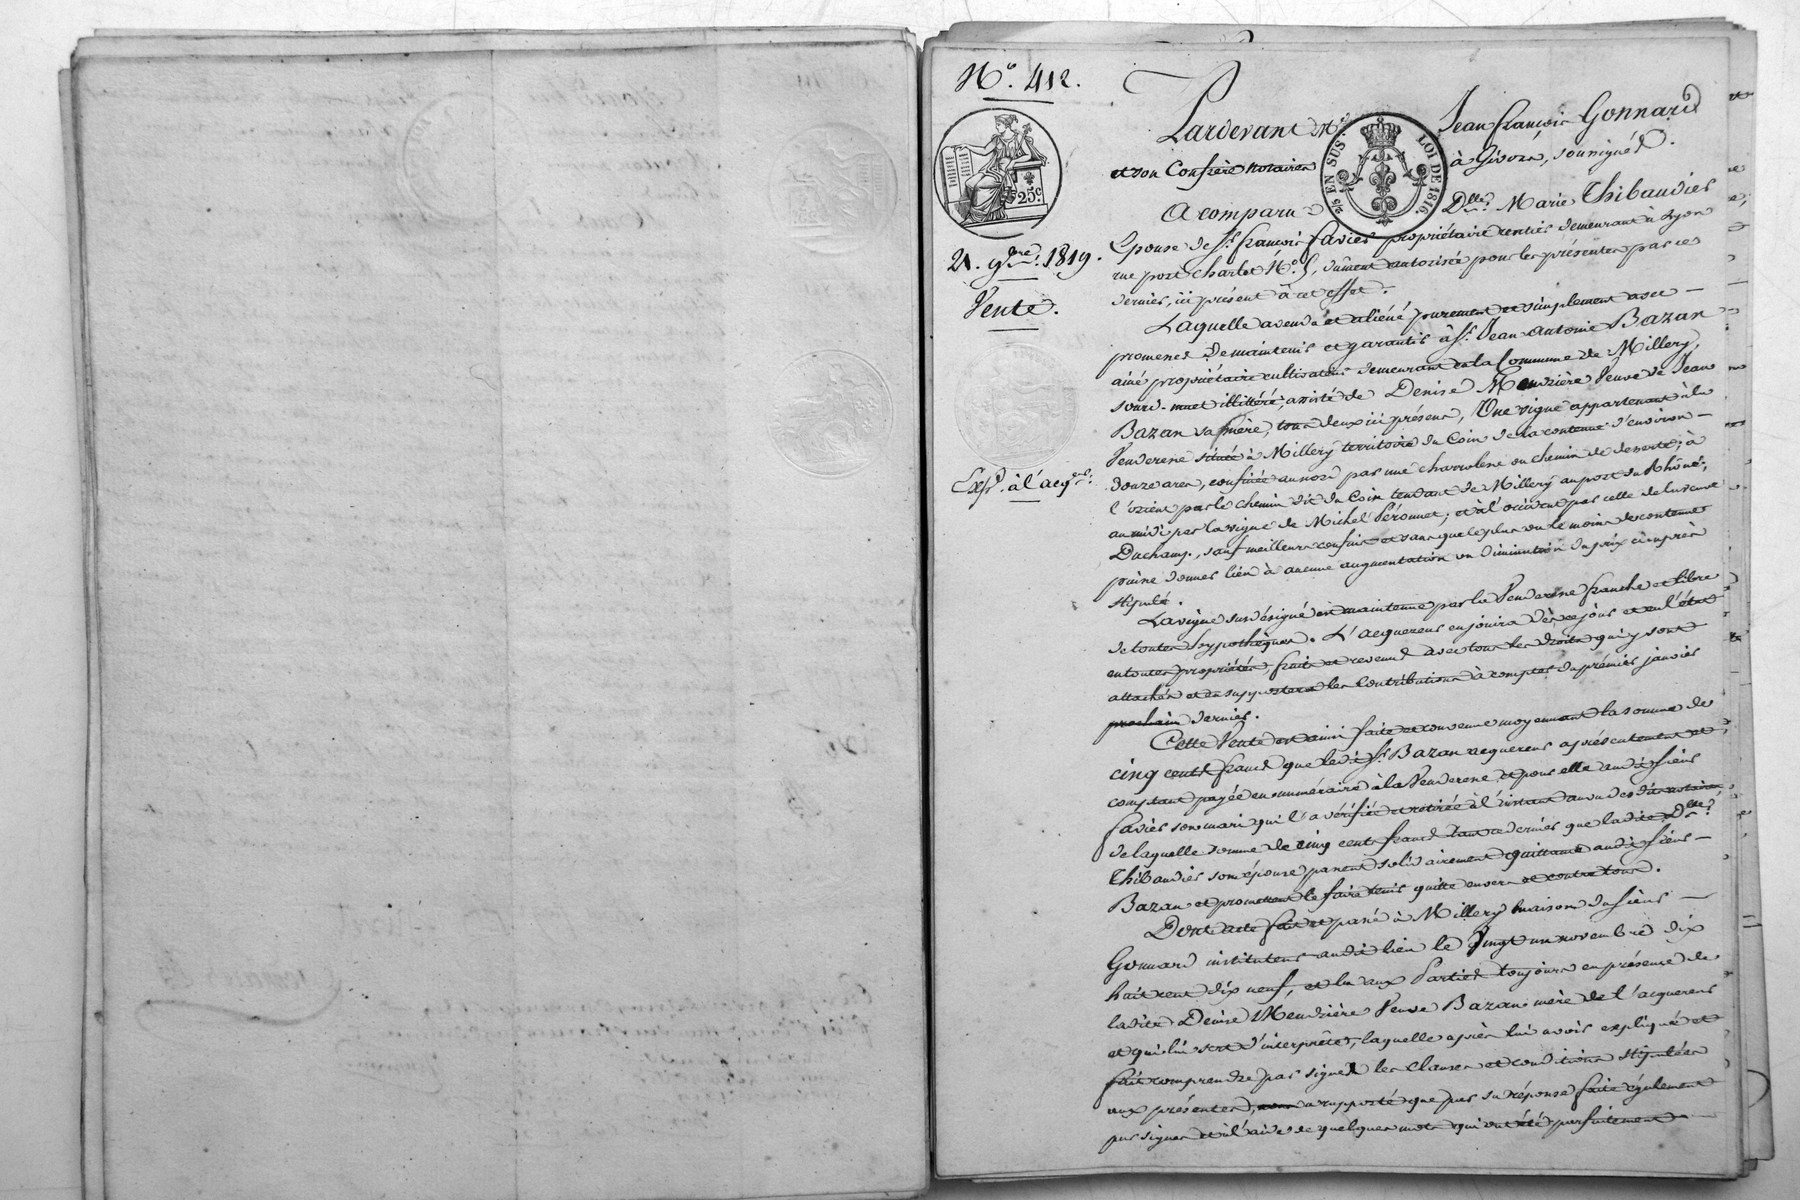 N.° 412.
25.c
21. 9bre. 1819.
Vente.
Exp.on à l'acqr.
2/5 EN SUS. LOI DE 1816.
Pardevant Me Jean François Gonnard
et son Confrère notaires à Givors, soussignés.
A comparu Dlle. Marie Thibaudier
Epouse de Sr. François Favier propriétaire rentier demeurant à Lyon
rue port Charlet N.° 5, dûment autorisée pour les présentes par ce
dernier, ici présent à cet effet.
Laquelle a vendu et aliéné purement et simplement avec
promesse de maintenir et garantir à Sr. Jean Antoine Bazan
ainé propriétaire cultivateur demeurant en la Commune de Millery,
sourd-muet illitéré, assisté de Denise Meudzière Veuve de Jean
Bazan sa mère, tous deux ici présens, Une vigne appartenant à la
Venderesse située à Millery territoire du Coin de la contenue d'environ
douze ares, confinée au nord par une charrobene ou chemin de desserte; à
l'orient par le chemin dit du Coin tendant de Millery au port du Rhône;
au midi par la vigne de Michel Péronnet; et à l'occident par celle de la veuve
Duchamp, sauf meilleurs confins et sans que le plus ou le moins de contenue
puisse donner lieu à aucune augmentation ou diminution du prix ci après
stipulé.
La vigne sus désignée est maintenue par la Venderesse franche et libre
de toutes hypothèques. L'acquereur en jouira dès ce jour et en l'état
en toutes propriétés, fruits et revenus avec tous les droits qui y sont
attachés et en supportera les Contributions à compter du prémier janvier
prochain dernier.
Cette Vente est ainsi faite et convenue moyennant la somme de
cinq cents francs que ledit Sr. Bazan acquereur a présentement et
comptant payée en numéraire à la Venderesse, et pour elle audit Sieur
Favier son mari qui l'a vérifiée et retirée à l'instant au vu desdits notaires
de laquelle somme de cinq cents francs tant ce dernier que ladite Dlle.
Thibaudier son épouse passent solidairement quittance audit Sieur
Bazan et promettent le faire tenir quitte envers et contre tous.
Dont acte fait et passé à Millery maison du Sieur
Gonnard instituteur audit lieu le Vingt un novembre dix
huit cent dix neuf, et lu aux Parties toujours en présence de
ladite Denise Meudzière Veuve Bazan mère de l'acquereur
et qui lui sert d'interprète, laquelle après lui avoir expliqué et
fait comprendre par signes les clauses et conditions stipulées
aux présentes, a rapporté que par sa réponse faite également
par signes et à l'aide de quelques mots qui ont été parfaitement